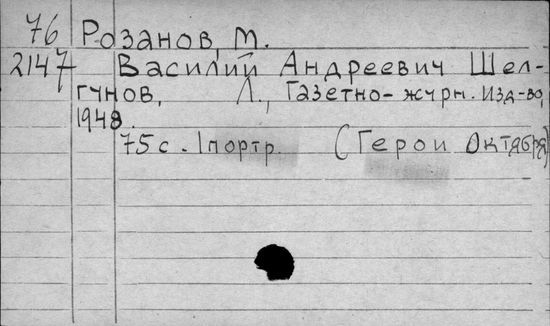 76 Розанов, М.
2147 Василий Андреевич Шел-
гунов, Л., Газетно-журн. изд-во,
1948.
75 с. 1 портр. (Герои Октября)